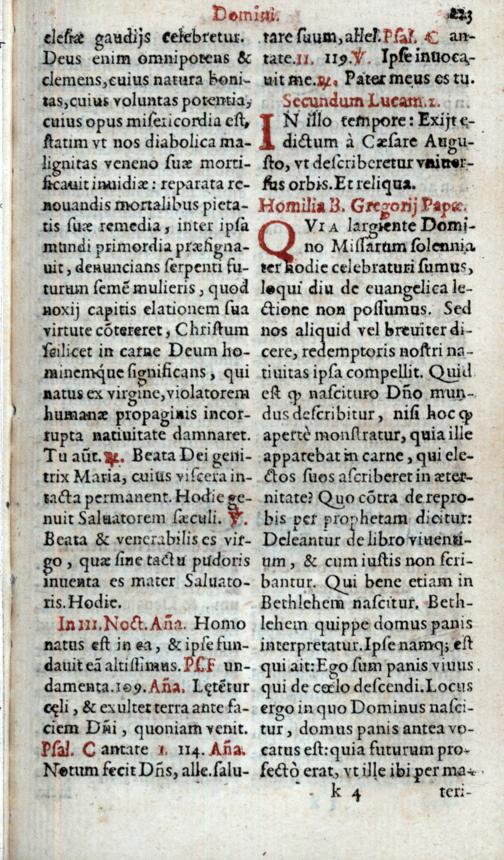 Domini. 223
elestæ gaudijs celebretur.
Deus enim omnipotens &
clemens, cuius natura boni-
tas, cuius voluntas potentia,
cuius opus misericordia est,
statim vt nos diabolica ma-
lignitas veneno suæ morti-
ficauit inuidiæ: reparata re-
nouandis mortalibus pieta-
tis suæ remedia, inter ipsa
mundi primordia præsigna-
uit, denuncians serpenti fu-
turum semē mulieris, quod
noxij capitis elationem sua
virtute cōtereret, Christum
scilicet in carne Deum ho-
minemque significans, qui
natus ex virgine, violatorem
humanæ propaginis incor-
rupta natiuitate damnaret.
Tu aūt. ℟. Beata Dei geni-
trix Maria, cuius viscera in-
tacta permanent. Hodie ge-
nuit Saluatorem sæculi. ℣.
Beata & venerabilis es vir-
go, quæ sine tactu pudoris
inuenta es mater Saluato-
ris. Hodie.
In III. Noct. Aña. Homo
natus est in ea, & ipse fun-
dauit eā altissimus. Ps. F un-
damenta. 109. Aña. Lętētur
cęli, & exultet terra ante fa-
ciem Dñi, quoniam venit.
Psal. C antate 1. 114. Aña.
Notum fecit Dñs, alle. salu-
tare suum, allel. Psal. C an-
tate. 11. 119. ℣. Ipse inuoca-
uit me. ℟. Pater meus es tu.
Secundum Lucam. 2.
IN illo tempore: Exijt e-
dictum à Cæsare Augu-
sto, vt describeretur vniuer-
sus orbis. Et reliqua.
Homilia B. Gregorij Papæ.
QVIA largiente Domi-
no Missarum solennia
ter hodie celebraturi sumus,
loqui diu de euangelica le-
ctione non possumus. Sed
nos aliquid vel breuiter di-
cere, redemptoris nostri na-
tiuitas ipsa compellit. Quid
est ꝙ nascituro Dño mun-
dus describitur, nisi hoc ꝙ
apertè monstratur, quia ille
apparebat in carne, qui ele-
ctos suos ascriberet in æter-
nitate? Quo cōtra de repro-
bis per prophetam dicitur:
Deleantur de libro viuenti-
um, & cum iustis non scri-
bantur. Qui bene etiam in
Bethlehem nascitur. Beth-
lehem quippe domus panis
interpretatur. Ipse namq; est
qui ait: Ego sum panis viuus,
qui de cœlo descendi. Locus
ergo in quo Dominus nasci-
tur, domus panis antea vo-
catus est: quia futurum pro-
fectò erat, vt ille ibi per ma-
k 4 teri-